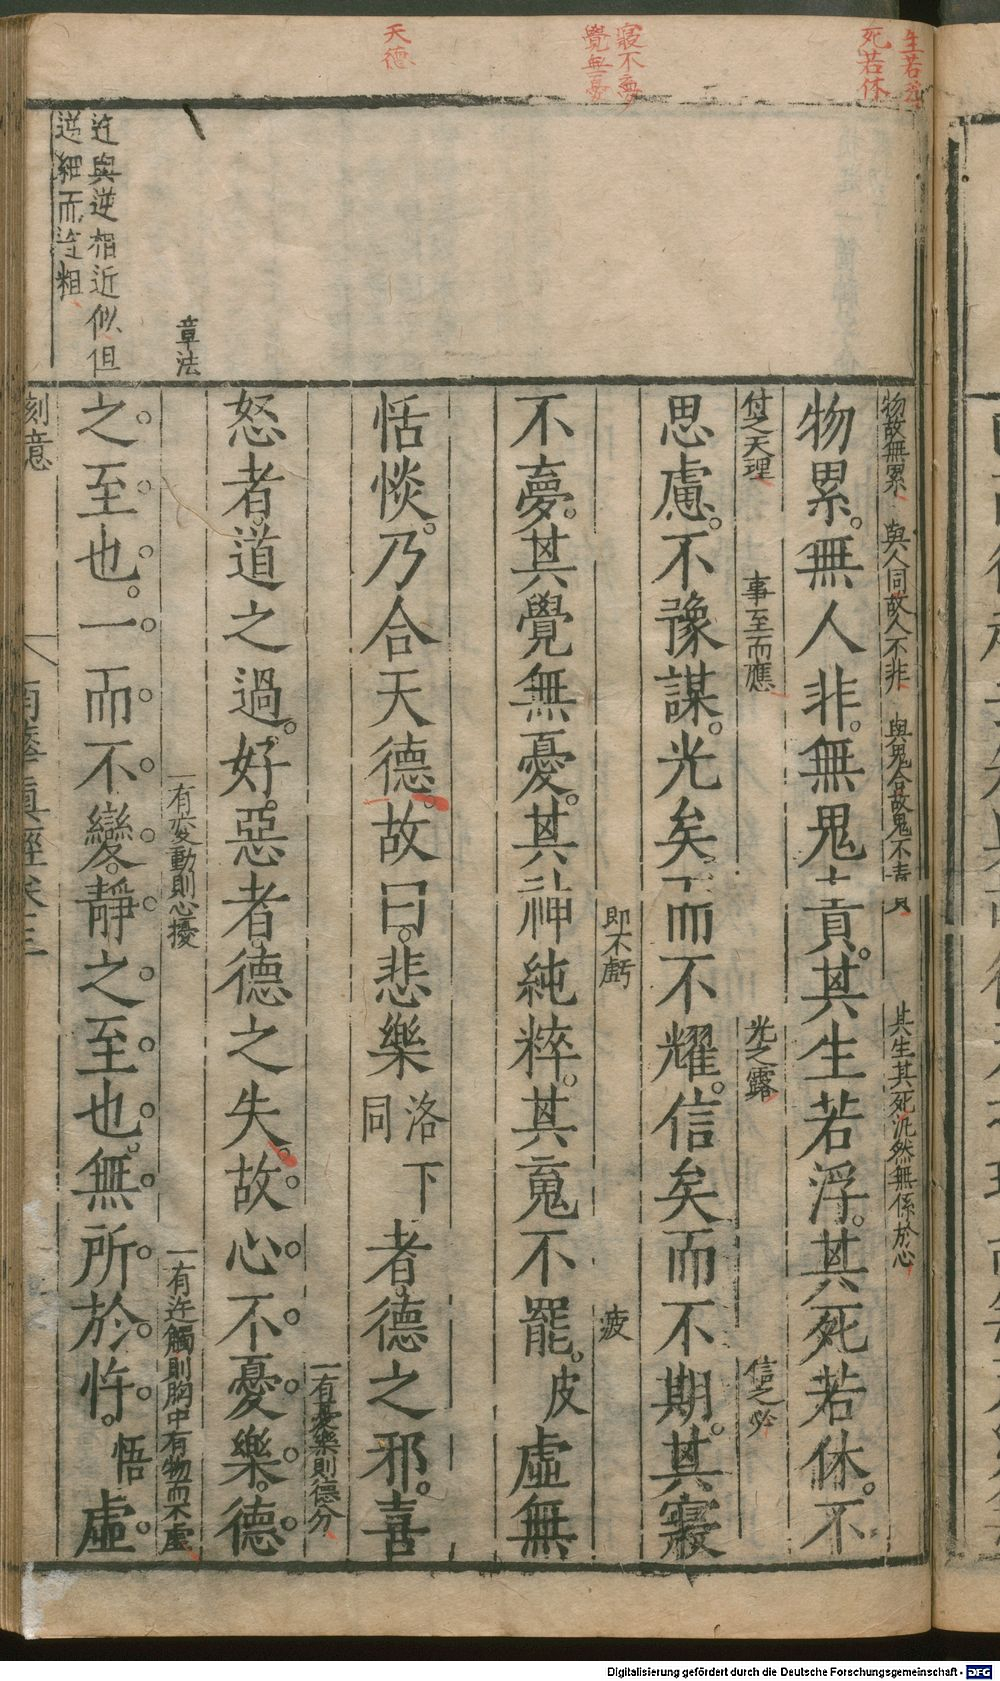 生若浮
死若休
寢不夢
覺無憂
天德
章法
迕與逆相近似但
逆細而迕粗
物故無累 與人同故人不非 與鬼合故鬼不責 其生其死汎然無係於心
物累。無人非。無鬼責。其生若浮。其死若休。不
付之天理 事至而應 光之露 信之必
思慮。不豫謀。光矣而不耀。信矣而不期。其寢
即不虧 疲
不夢。其覺無憂。其神純粹。其䰟不罷。皮虛無
恬惔。乃合天德。故曰。悲樂洛下同者。德之邪。喜
一有憂樂則德分
怒者。道之過。好。惡者。德之失。故心不憂樂。德
一有変動則心擾 一有迕觸則胸中有物而不虛
之至也。一而不變。靜之至也。無所於忤。悟虛
刻意
南華真經卷三
Digitalisierung gefördert durch die Deutsche Forschungsgemeinschaft - DFG